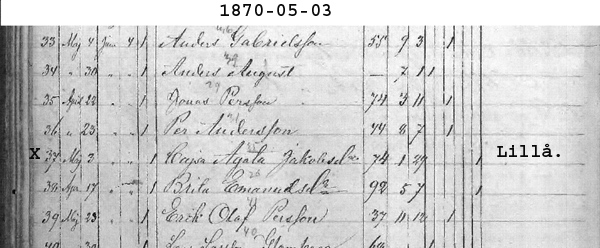 1870-05-03
33 Maj 4 Jun 4 1 Anders Gabrielsson 55 9 3 1
34 " 30 " " 1 Anders August — 7 11
35 April 22 " " 1 Jonas Persson 74 3 11 1
36 " 23 " " 1 Per Andersson 44 8 7 1
X 37 Maj 3 " " 1 Caja Agata Jakobsd 74 1 29 1 Lillå.
38 Apr 17 " " 1 Brita Emanuelsd 92 5 7 1
39 Maj 23 " " 1 Erik Olof Persson 37 11 12 1